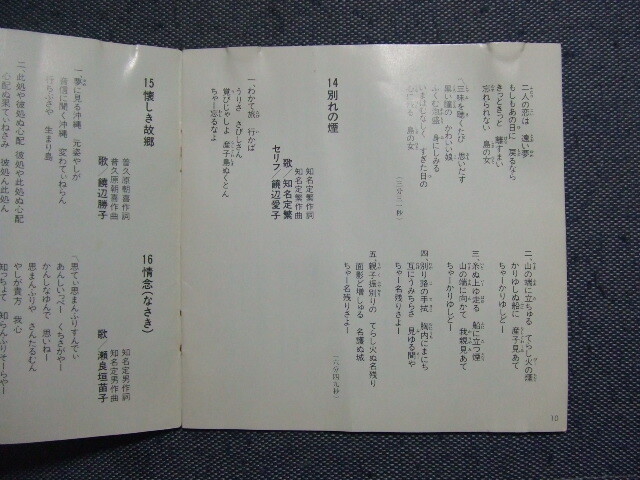 二人の恋は　遠い夢
もしもあの日に　戻るなら
きっときっと　離すまい
忘れられない　島の女
一、三味を聴くたび　思いだす
黒い瞳の　かわいい娘
ふくむ泡盛　身にしみる
いまはむなしく　すぎた日の
忘れよか　島の女
（三分三一秒）
14 別れの煙
知名定繁作詞
知名定繁作曲
歌／知名定繁
セリフ／饒辺愛子
一、わかて旅　行かば
うりさ　さびしさん
覚びじゃしょ　産子島ぬくとん
ちゃー忘るなよ
二、山の端に立ちゅる　てらし火の煙
かりゆしぬ船に　産子見あて
ちゃーかりゆしどー
三、糸ぬ上ゆ走る　船に立つ煙
山の端に向かて　我親見あて
ちゃーかりゆしどー
四、別り路の手拭　胸内にまにち
互にうみちらさ　見ゆる間や
ちゃー名残りさよー
五、親子振別りの　てらし火ぬ名残り
面影ど増しゅる　名護ぬ城
ちゃー名残りさよー
（六分四九秒）
10
15 懐しき故郷
普久原朝喜作詞
普久原朝喜作曲
歌／饒辺勝子
一、夢に見る沖縄　元姿やしが
音信に聞く沖縄　変わてぃねらん
行ちぶさや　生まり島
二、此処や彼処ぬ心配　彼処や此処ぬ心配
心配ぬ果てぃねさみ　彼処ん此処ん
16 情念（なさき）
知名定男作詞
知名定男作曲
歌／瀬良垣苗子
一、思てぃ思まんふりすんでぃ
あんしいっぺー　くちさがやー
かんしなゆんで　思いねー
思まんふりや　さんたるむん
やしが貴方　我心
知っちょて　知らんふりそーらやー